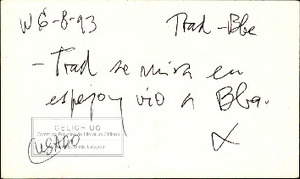 W 6-8-93 Trad - Bbe
- Trad se mira en
espejo y vio a Bba.
CELICH UC
USADO